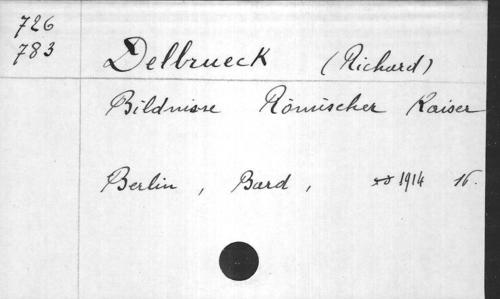 726
783
Delbrueck (Richard)
Bildnisse Römischer Kaiser
Berlin, Bard, 1914 16.